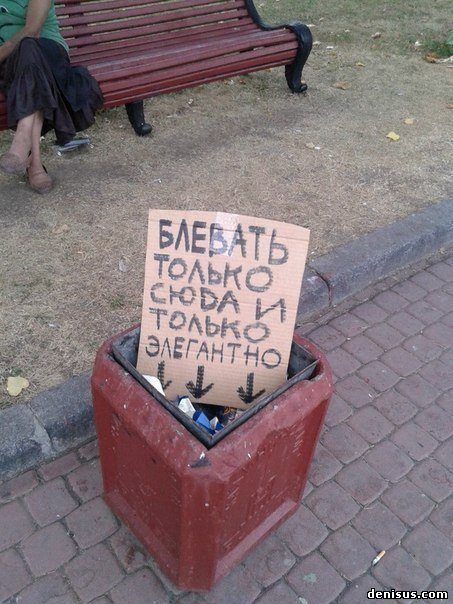 БЛЕВАТЬ
ТОЛЬКО
СЮДА И
ТОЛЬКО
ЭЛЕГАНТНО
↓ ↓ ↓
denisus.com